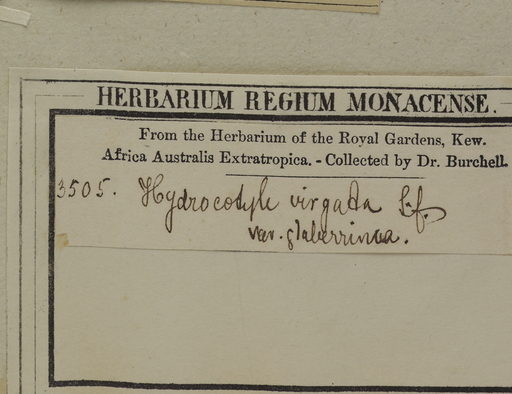 HERBARIUM REGIUM MONACENSE.
From the Herbarium of the Royal Gardens, Kew.
Africa Australis Extratropica. - Collected by Dr. Burchell.
3505. Hydrocotyle virgata L.f.
var. glaberrima.